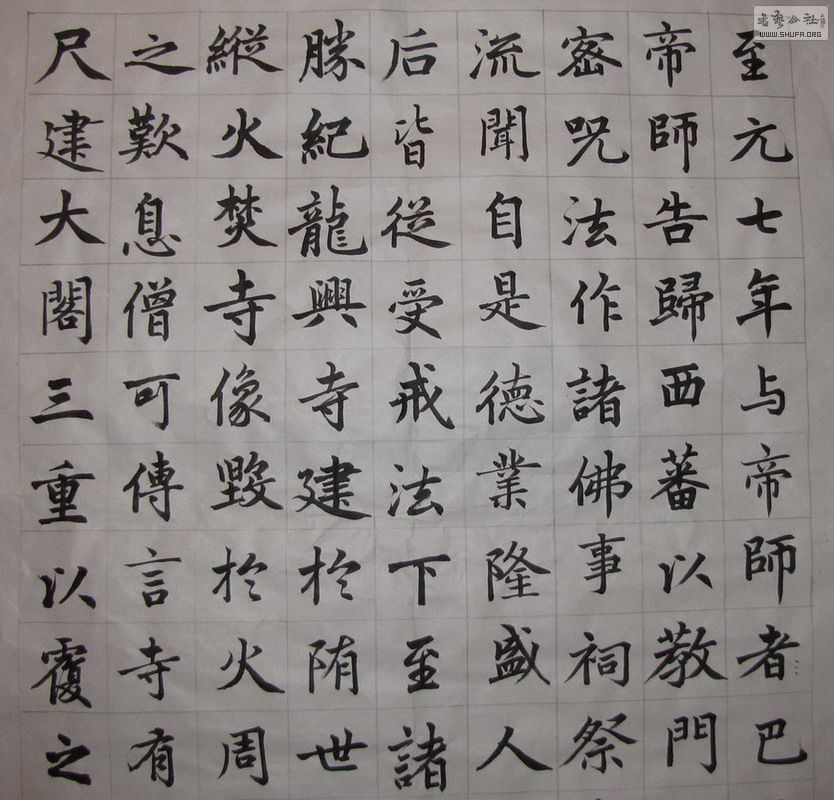 至元七年与帝師者巴
帝師告歸西蕃以教門
密呪法作諸佛事祠祭
流聞自是德業隆盛人
后皆從受戒法下至諸
勝紀龍興寺建於隋世
縱火焚寺像毀於火周
之歎息僧可傳言寺有
尺建大閣三重以覆之
WWW.SHUFA.ORG